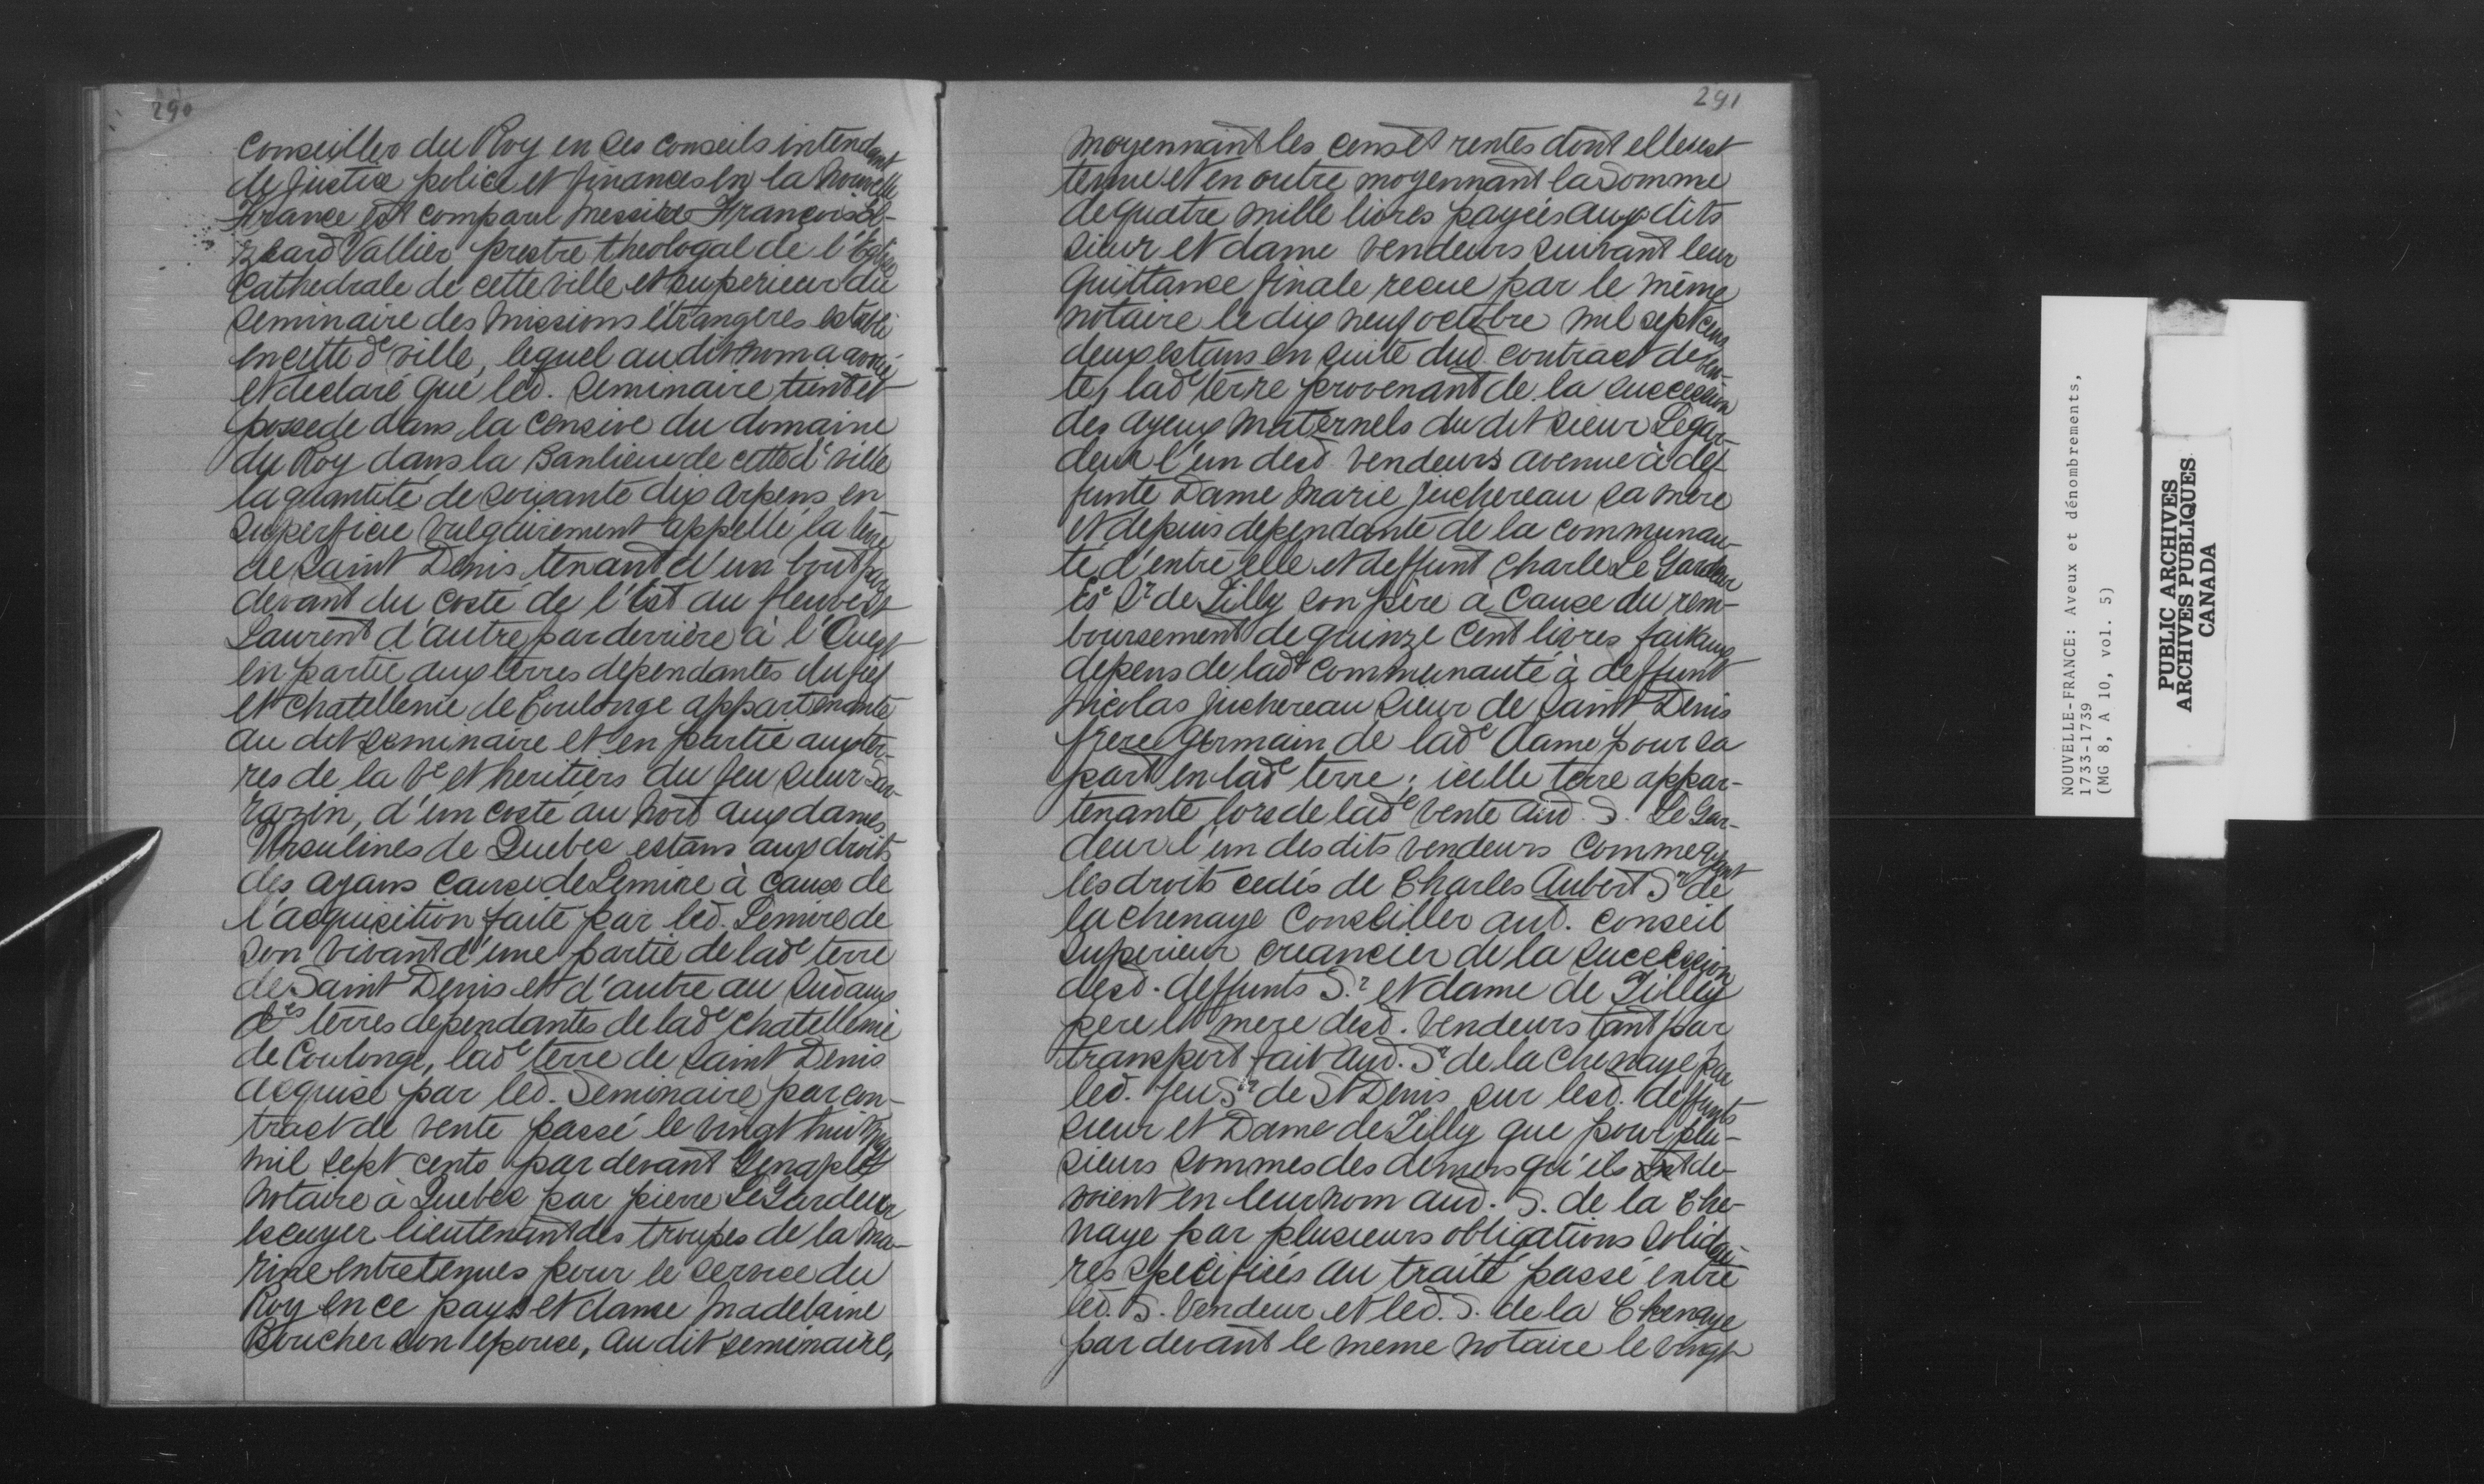 290
Conseiller du Roy en ses conseils intendant
de justice police et finances en la Nouvelle
France est comparu Messire François El-
zeard Vallier prestre theologal de l'Eglise
Cathedrale de cette ville et superieur du
Seminaire des Missions étrangeres establi
en cette de ville, lequel au dit nom a avoué
et declaré que led. Seminaire tient et
possede dans la censive du domaine
du Roy dans la Banlieue de cette de ville
la quantité de soixante dix arpens en
superficie vulgairement appellé la terre
de Saint Denis tenant d'un bout par
devant du costé de l'Est au fleuve St
Laurent d'autre par derrière à l'Ouest
en partie aux terres dependantes du fief
et chatellenie de Coulonge appartenante
au dit Seminaire et en partie aux ter-
res de la Ve et heritiers du feu sieur Sar-
razin, d'un costé au Nord aux dames
Ursulines de Quebec estans aux droits
des ayans cause de Lemire à cause de
l'acquisition faite par led. Lemire de
son vivant d'une partie de lade terre
de Saint Denis et d'autre au Sud aux
des terres dependantes de lade chatellenie
de Coulonge, lade terre de Saint Denis
acquise par led. Seminaire par con-
tract de vente passé le vingt huit
mil sept cents par devant Genaple
Notaire à Quebec par pierre LeGardeur
escuyer lieutenant des troupes de la Ma-
rine entretenues pour le service du
Roy en ce pays et dame Madelaine
Boucher son epouse, au dit seminaire,
291
moyennant les cens et rentes dont elle est
tenue et en outre moyennant la somme
de quatre mille livres payées aux dits
sieur et dame vendeurs suivant leur
quittance finale recue par le même
notaire le dix neuf octobre mil sept cens
deux estans en suite dud. contract de ven-
te, lade terre provenant de la succession
des ayeux maternels du dit sieur Legar-
deur l'un desd. vendeurs avenue à def-
funte Dame Marie Juchereau sa mere
et depuis dependante de la communau-
té d'entre elle et deffunt Charle Le Gardeur
Esc Sr de Tilly son père a cause du rem-
boursement de quinze cent livres fait aux
depens de lade communauté à deffunt
Nicolas Juchereau Sieur de Saint Denis
frere germain de lade dame pour sa
part en lade terre; icelle terre appar-
tenante lors de lade vente aud. S. Le Gar-
deur l'un des dits vendeurs comme ayant
les droits cedés de Charles Aubert Sr de
la chenaye Conseiller aud. conseil
superieur creancier de la succession
desd. deffunts Sr et dame de Tilly
pere et mere desd. vendeurs tant par
transport fait aud. Sr de la Chenaye par
led. feu Sr de St Denis sur lesd. deffunts
sieur et Dame de Tilly que pour plu-
sieurs sommes des deniers qu'ils de-
voient en leur nom aud. S. de la Che-
naye par plusieurs obligations solidai-
res specifiés au traité passé entre
led. S. Vendeur et led. S. de la Chenaye
par devant le meme notaire le vingt
NOUVELLE-FRANCE: Aveux et dénombrements,
1733-1739
(MG 8, A 10, vol. 5)
PUBLIC ARCHIVES
ARCHIVES PUBLIQUES
CANADA